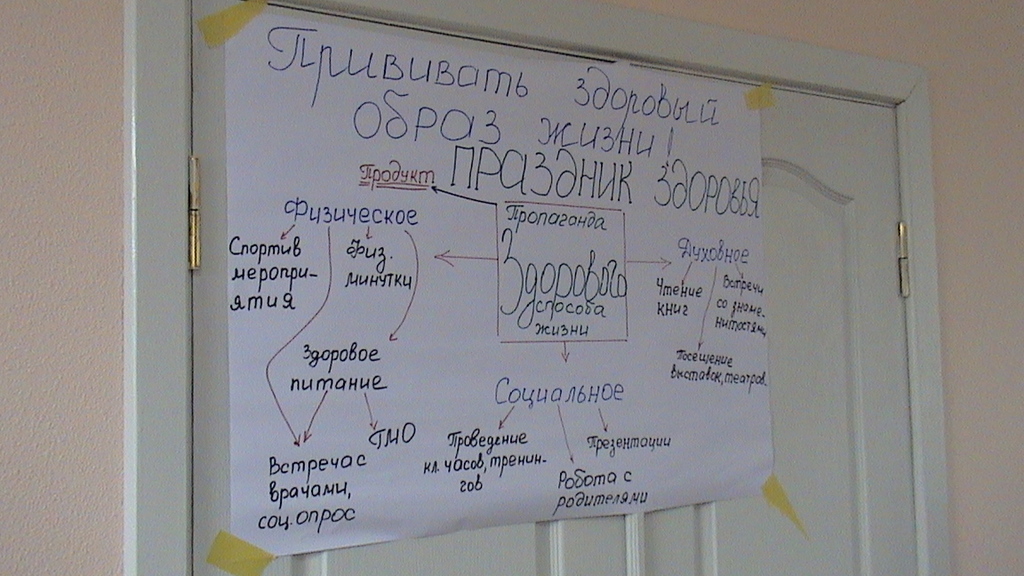 Прививать здоровый
образ жизни!
Продукт
ПРАЗДНИК ЗДОРОВЬЯ
Физическое
Спортив
меропри-
ятия
Физ.
минутки
Здоровое
питание
ГМО
Встреча с
врачами,
соц. опрос
Пропаганда
Здорового
способа
жизни
Социальное
Проведение
кл. часов, тренин-
гов
Робота с
родителями
Презентации
Духовное
Чтение
книг
Встречи
со знаме-
нитостями
Посещение
выставок, театров.